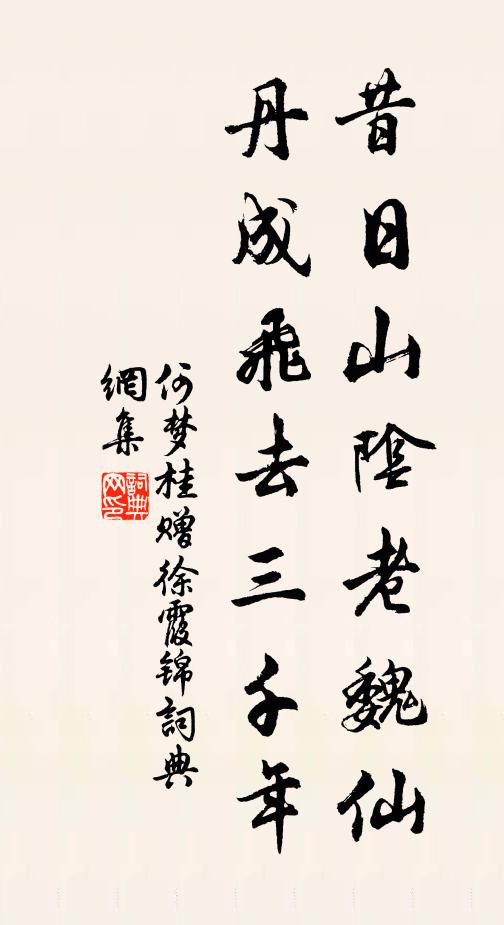 昔日山陰老魏仙
丹成飛去三千年
何梦桂赠徐霞锦詞典
網集
詞典
网印